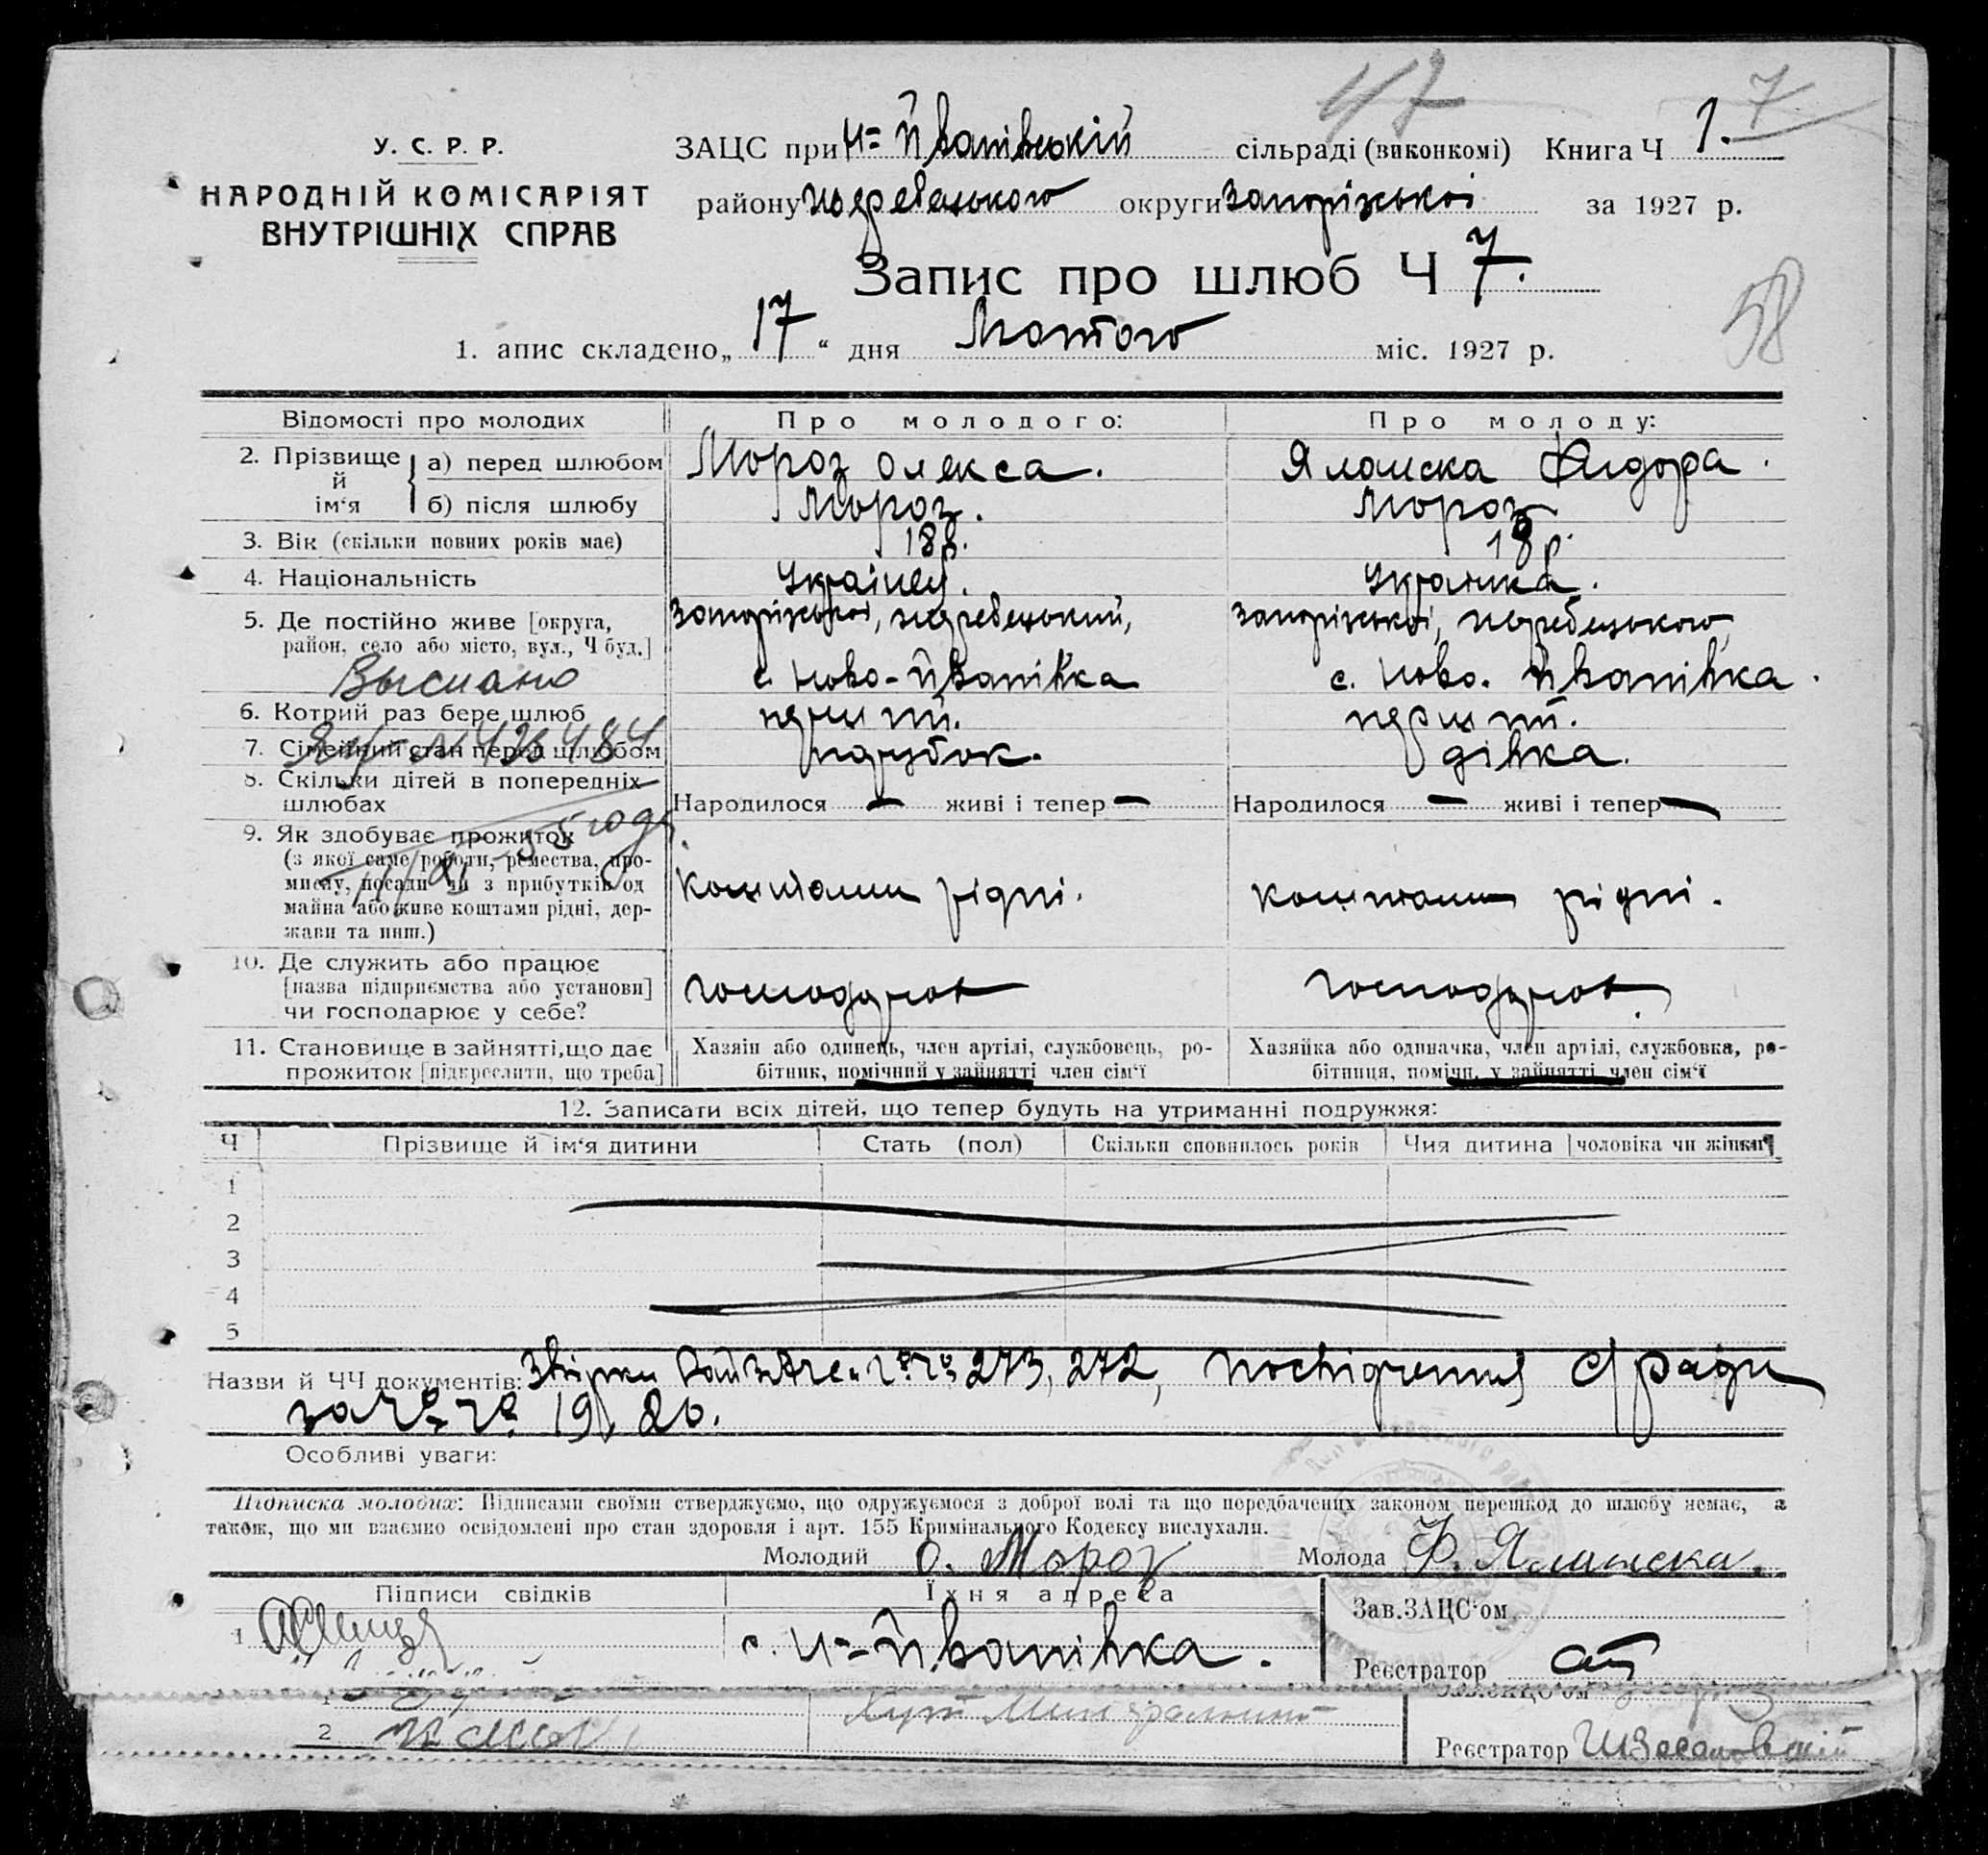 47
7
У. С. Р. Р.
НАРОДНІЙ КОМІСАРІЯТ
ВНУТРІШНІХ СПРАВ
ЗАЦС при Н= Йванівській сільраді (виконкомі) Книга Ч 1.
району Жеребецького округи Запорізької за 1927 р.
Запис про шлюб Ч 7.
58
1. апис складено „ 17 “ дня Лютого міс. 1927 р.
Відомості про молодих
Про молодого:
Про молоду:
2. Прізвище й ім‘я
а) перед шлюбом Мороз Олекса. Яланска Фидора.
б) після шлюбу Мороз. Мороз
3. Вік (скільки повних років має) 18 р. 18 р.
4. Національність Українец. Украінка.
5. Де постійно живе [округа, район, село або місто, вул., Ч буд.]
Запорізькоі, Жеребецький, с. Ново-Йванівка
Запорізькоі, Жеребецького, с. Ново. Йванівка.
Выслано
6. Котрий раз бере шлюб перший. перший.
7. Сімейний стан перед шлюбом парубок. дівка.
8. Скільки дітей в попередніх шлюбах Народилося — живі і тепер — Народилося — живі і тепер —
года
9. Як здобуває прожиток
(з якої саме роботи, ремества, про-
мислу, посади чи з прибутків од
майна або живе коштами рідні, дер-
жави та инш.)
коштами рідні. коштами рідні.
10. Де служить або працює
[назва підприємства або установи]
чи господарює у себе?
11. Становище в зайнятті, що дає
прожиток [підкреслити, що треба]
Хазяїн або одинець, член артілі, службовець, ро-
бітник, помічний у зайнятті член сім‘ї
Хазяйка або одиначка, член артілі, службовка, ро-
бітниця, помічн. у зайнятті член сім‘ї
12. Записати всіх дітей, що тепер будуть на утриманні подружжя:
Ч Прізвище й ім‘я дитини Стать (пол) Скільки сповнилось років Чия дитина [чоловіка чи жінки]
1
2
3
4
5
Назви й ЧЧ документів: 273, 272, посвідчення с/ради
за 19, 20.
Особливі уваги:
Підписка молодих: Підписами своїми стверджуємо, що одружуємося з доброї волі та що передбачених законом перешкод до шлюбу немає, а
також, що ми взаємно освідомлені про стан здоровля і арт. 155 Кримінального Кодексу вислухали.
Молодий О. Мороз Молода Ф. Яланска.
Підписи свідків Їхня адреса
Зав. ЗАЦС‘ом
1 с. Н=Йванівка.
Реєстратор
2
Реєстратор